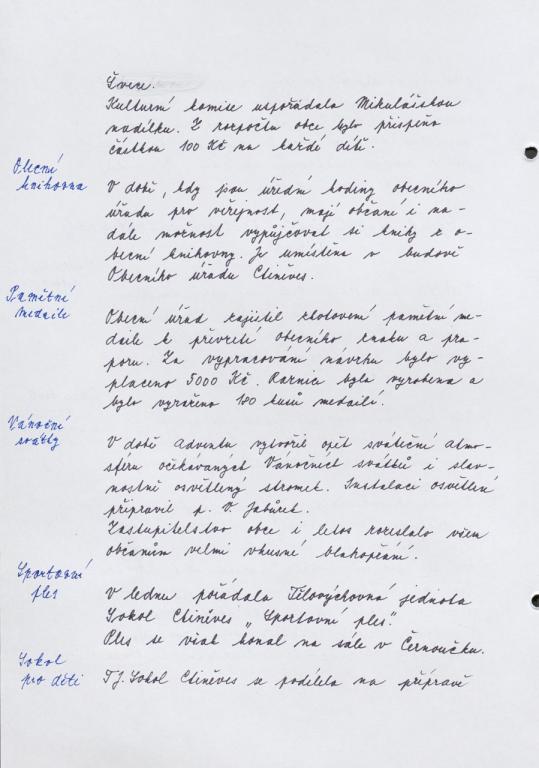 Švece.
Kulturní komise uspořádala Mikulášskou
nadílku. Z rozpočtu obce bylo přispěno
částkou 100 Kč na každé dítě.
Obecní
knihovna
V době, kdy jsou úřední hodiny obecního
úřadu pro veřejnost, mají občané i na-
dále možnost vypůjčovat si knihy z o-
becní knihovny. Je umístěna v budově
Obecního úřadu Ctiněves.
Pamětní
medaile
Obecní úřad zajistil zhotovení pamětní me-
daile k převzetí obecního znaku a pra-
poru. Za vypracování návrhu bylo vy-
placeno 5000 Kč. Raznice byla vyrobena a
bylo vyraženo 180 kusů medailí.
Vánoční
svátky
V době adventu vytvořil opět sváteční atmo-
sféru očekávaných Vánočních svátků i slav-
nostně osvětlený stromek. Instalaci osvětlení
připravil p. V. Jabůrek.
Zastupitelstvo obce i letos rozeslalo všem
občanům velmi vkusné blahopřání.
Sportovní
ples
V lednu pořádala Tělovýchovná jednota
Sokol Ctiněves „Sportovní ples“.
Ples se však konal na sále v Černoučku.
Sokol
pro děti
TJ. Sokol Ctiněves se podílela na přípravě